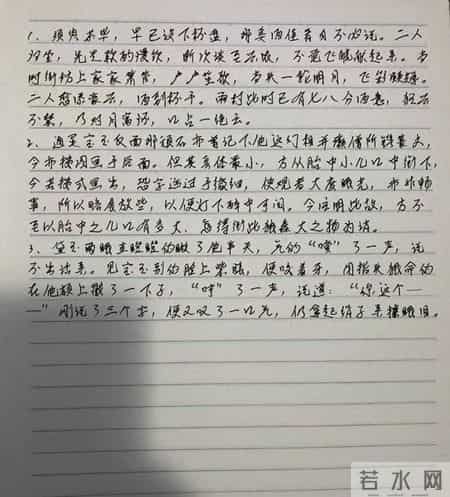 1. 须臾茶毕，早已设下杯盘，那美酒佳肴自不必说。二人
归坐，先是款酌慢饮，渐次谈至兴浓，不觉飞觥献起来。当
时街坊上家家箫管，户户笙歌，当头一轮明月，飞彩凝辉。
二人愈添豪兴，酒到杯干。雨村此时已有七八分酒意，狂兴
不禁，乃对月寓怀，口占一绝云。
2. 通灵宝玉反面那顽石亦曾记下他这幻相并癞僧所镌篆文，
今亦按图画于后面。但其真体最小，方从胎中小儿口中衔下，
今若按式画出，恐字迹过于微细，使观者大废眼光，亦非畅
事，所以略展放些，以便灯下醉中可阅。今注明此故，方不
至以胎中之儿口有多大，怎得衔此狼犺大之物为诮。
3. 黛玉两眼直瞪瞪的瞅了他半天，气的“嗳”了一声，说
不出话来。见宝玉别的脸上紫胀，便咬着牙，用指头狠命的
在他额上戳了一下子，“哼”了一声，说道：“你这个—
—”刚说了三个字，便又叹了一口气，仍拿起绢子来擦眼泪。
若水网